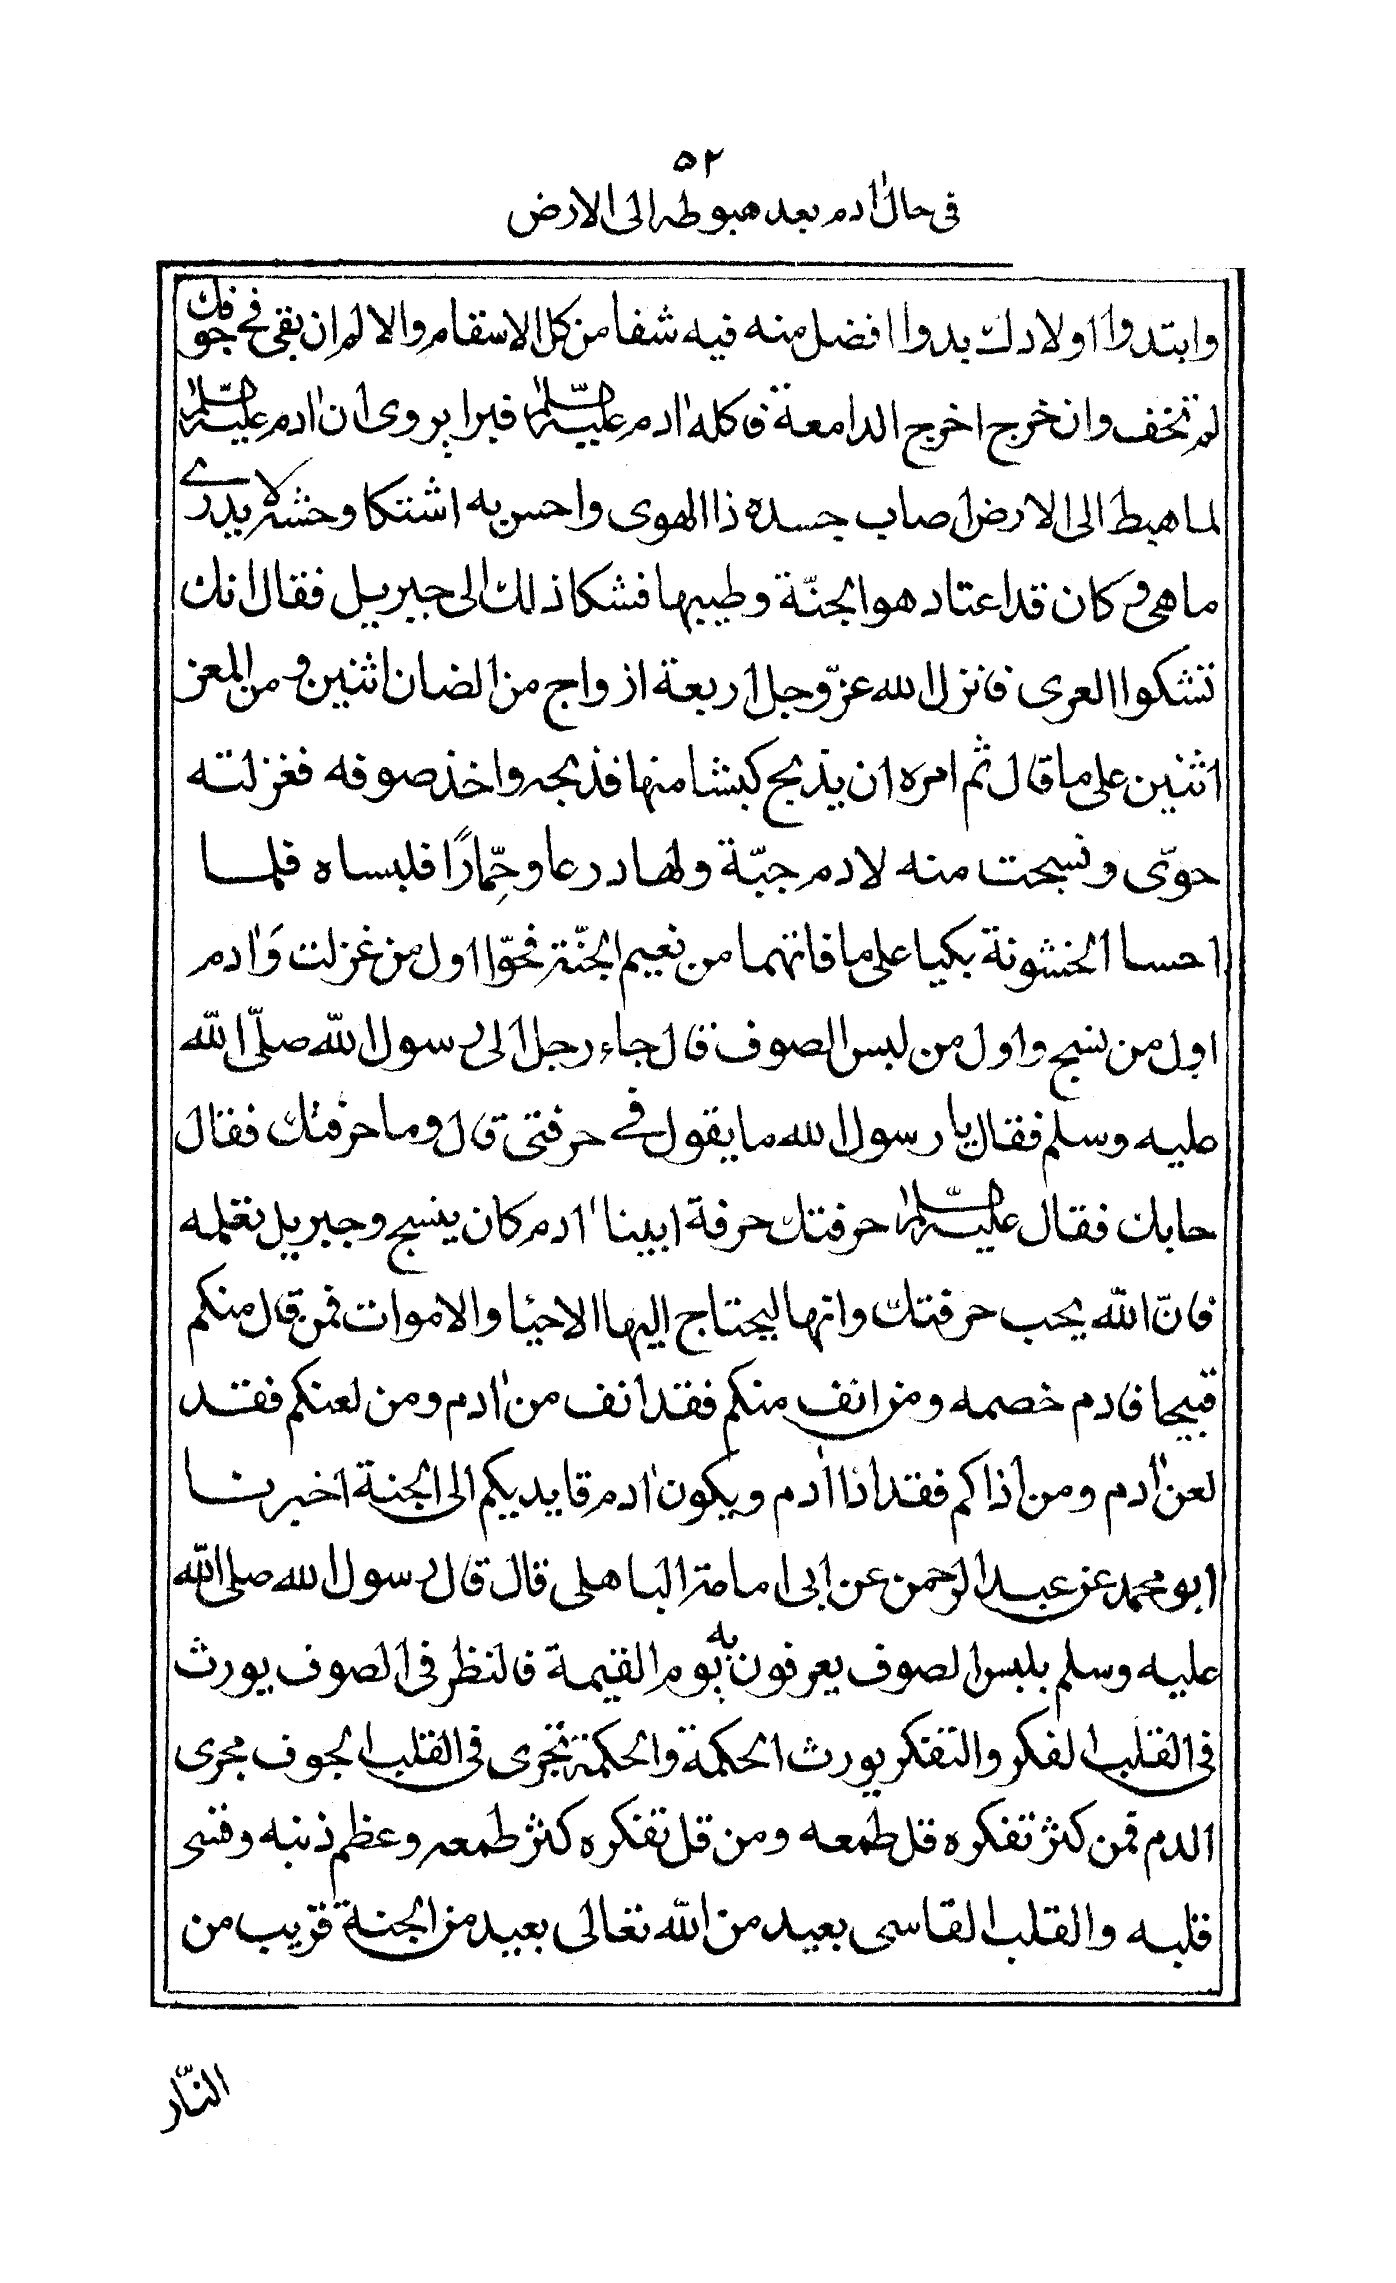 ٥٢
في حال اٰدم بعد هبوطه الى الارض
وابتدوا اولادك بدوا افضل منه فيه شفا من كل الاسقام والالم ان بقى في جوفك
لم تخف وان خرج اخرج الدامعة فاكله اٰدم عليه السلام فبرا يروى ان اٰدم عليه السلام
لما هبط الى الارض اصاب جسده ذا الهوى واحس به اشتكا وحشه لا يدرى
ما هى وكان قد اعتاد هوا الجنّة وطيبها فشكا ذلك الى جبريل فقال انك
تشكوا العرى فانزل الله عزّ وجل اربعة ازواج من الضان اثنين ومن المعز
اثنين على ما قال ثم امره ان يذبح كبشا منها فذبحه واخذ صوفه فغزلته
حوّى ونسجت منه لادم جبّة ولها درعا وخمارًا فلبساه فلما
احسا الخشونة بكيا على ما فاتهما من نعيم الجنّة فحوّا اول من غزلت وَاٰدم
اول من نسج واول من لبس الصوف قال جاء رجل الى رسول الله صلّى الله
عليه وسلم فقال يا رسول الله ما يقول في حرفتى قال وما حرفتك فقال
حايك فقال عليه السّلام حرفتك حرفة ابينا اٰدم كان ينسج وجبريل تعلمه
فانّ الله يحب حرفتك وانها ليحتاج اليها الاحيا والاموات فمن قال منكم
قبيحا فادم خصمه ومن انف منكم فقد انف من اٰدم ومن لعنكم فقد
لعن اٰدم ومن اذاكم فقد اذا اٰدم ويكون اٰدم قايديكم الى الجنة اخبرنا
ابو محمد عن عبد الرحمن عن ابى امامة الباهلى قال قال رسول الله صلى الله
عليه وسلم بلبس الصوف يعرفون به يوم القيمة فالنظر فى الصوف يورث
فى القلب الفكر والتفكر يورث الحكمة والحكمة تجرى فى القلب الجوف مجرى
الدم فمن كثر تفكره قل طمعه ومن قل تفكره كثر طمعه وعظم ذنبه وقسى
قلبه والقلب القاسى بعيد من الله تعالى بعيد من الجنة قريب من
النّار